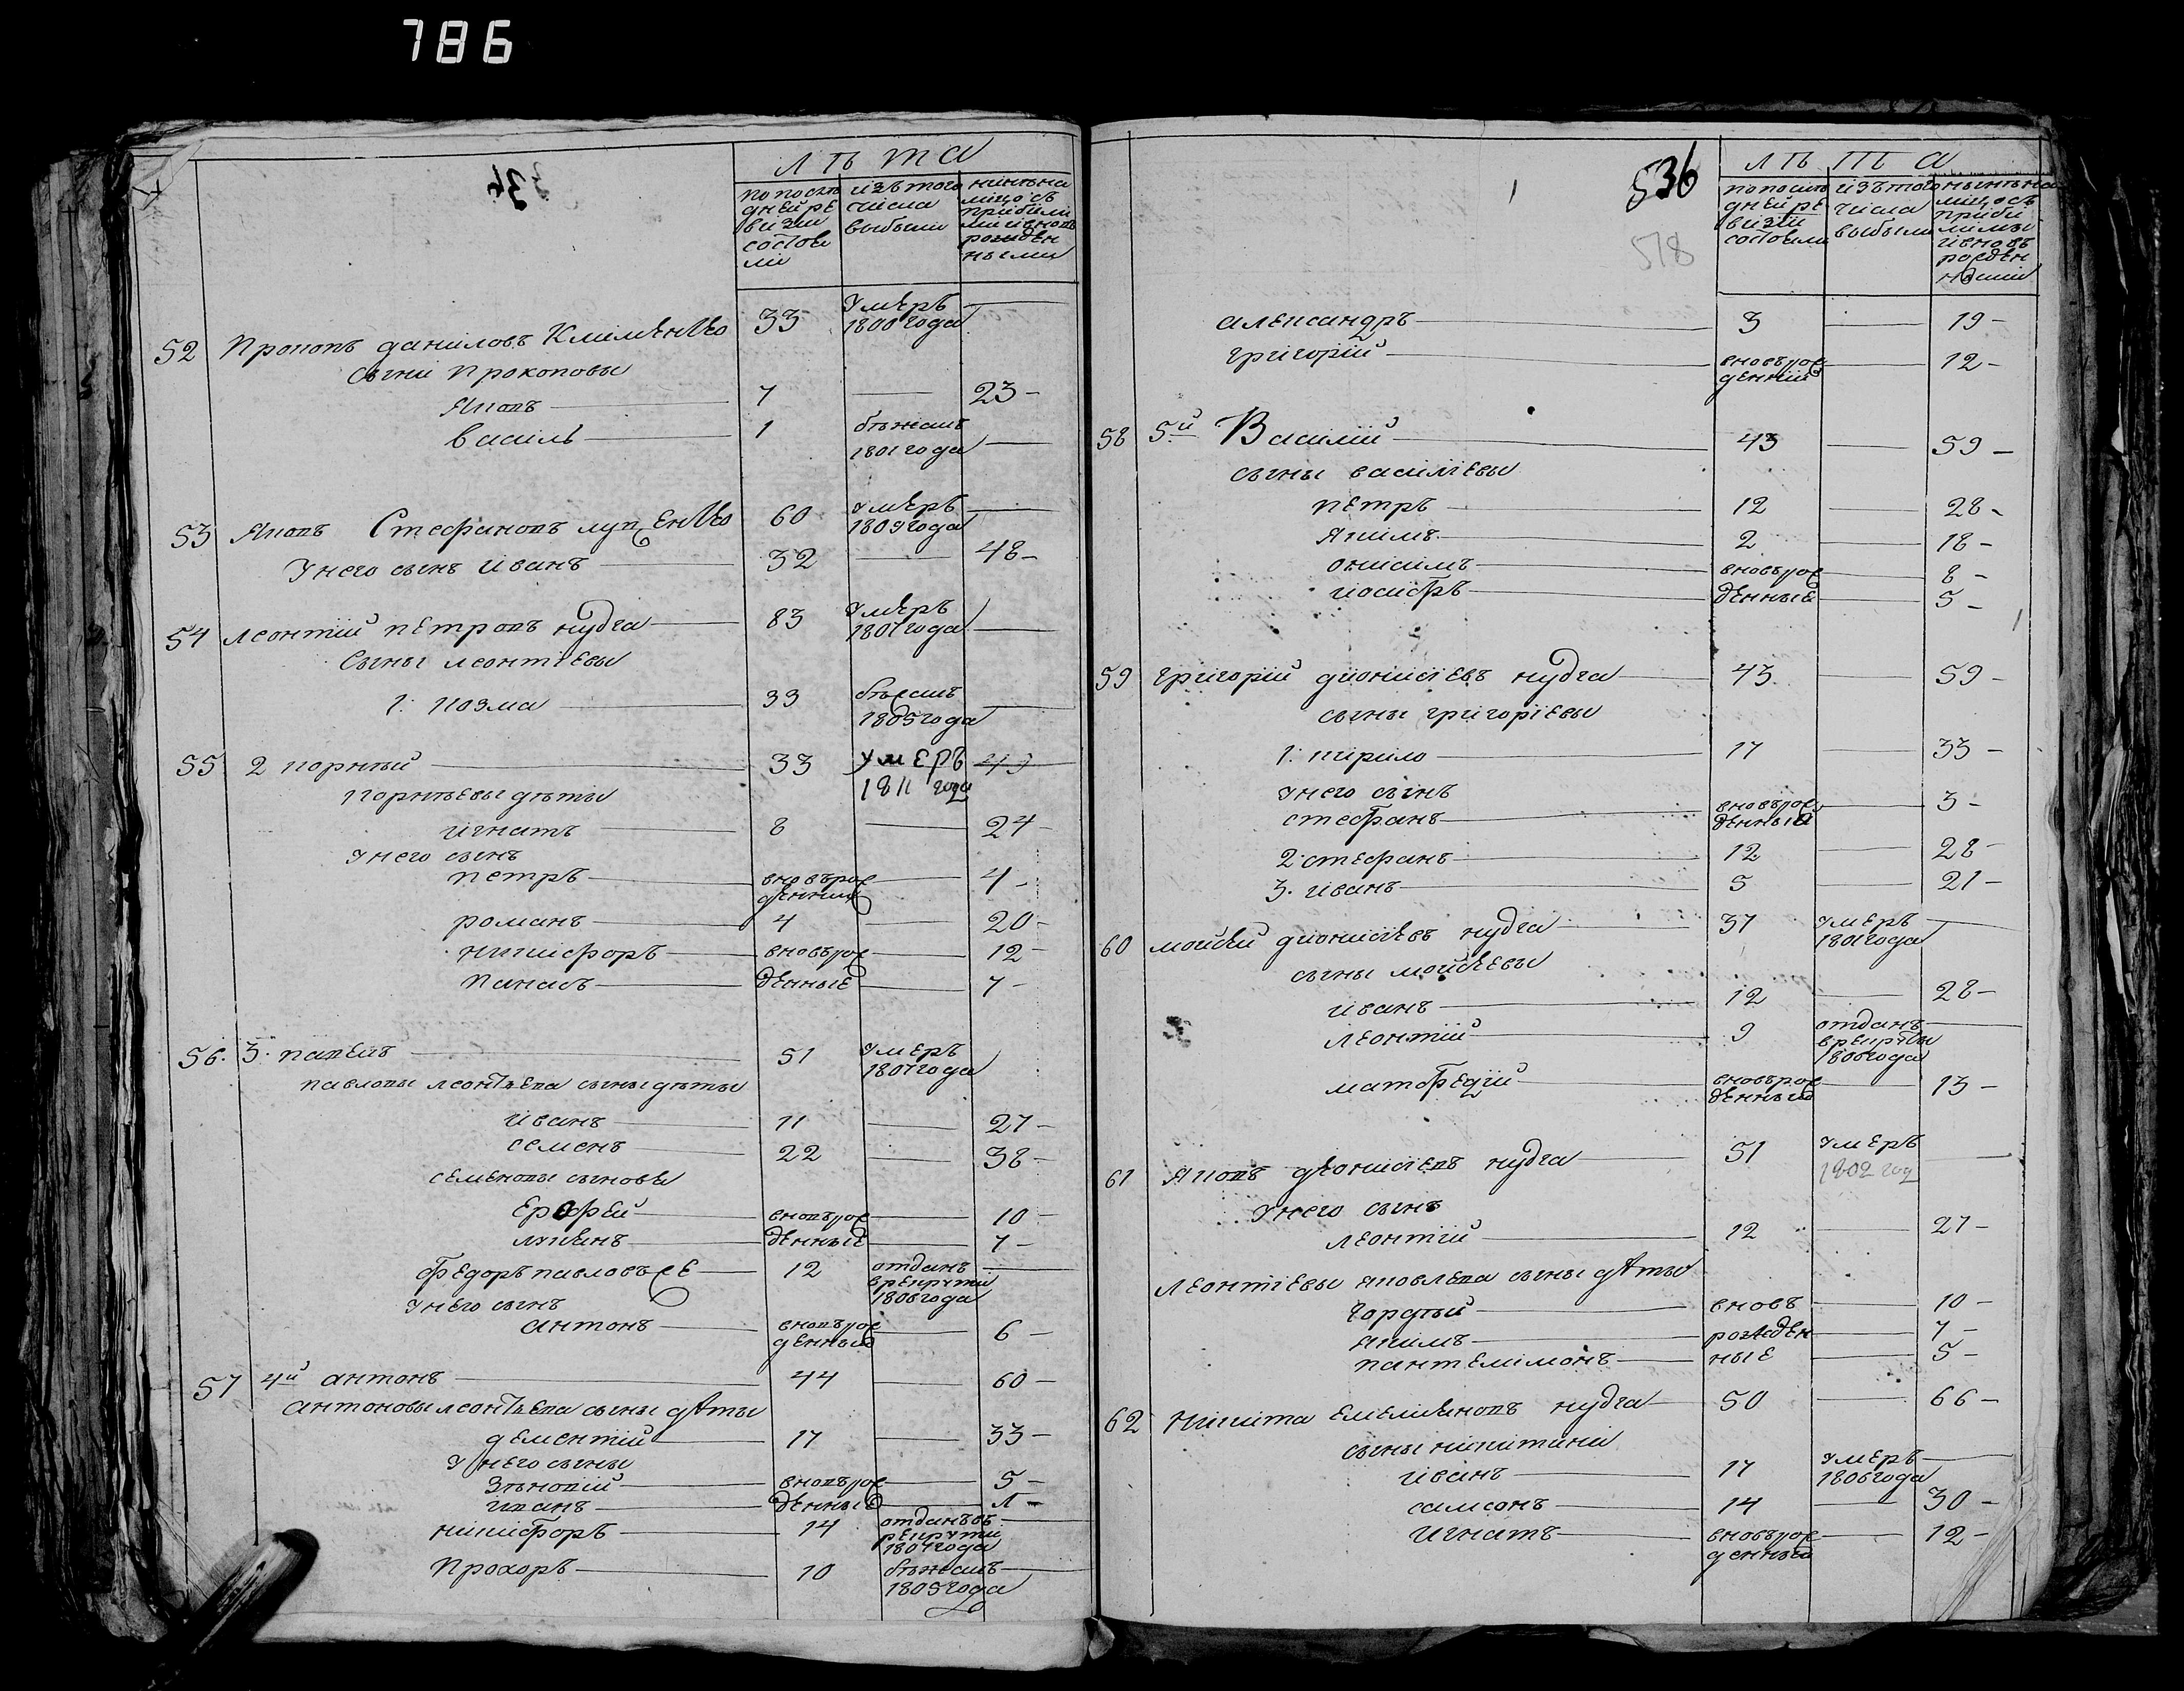 786
Лѣта
по послѣ дней ре визіи состоя ли
изъ того числа выбыли
нынѣ на лицо съ прибылими и вновь рожден ными
52 Прокопъ даниловъ Клименко 33 умеръ 1800 года —
Сыни Прокоповы
Яковъ — 7 — 23 —
Василь — 1 бѣжалъ 1801 года —
53 Яковъ Стефановъ луценко 60 умеръ 1809 года —
У него сынъ иванъ — 32 — 48 —
54 леонтій петровъ нудга — 83 умеръ 1807 года —
Сыны леонтіевы
1: козма — 33 бѣжалъ 1805 года —
55 2 корнѣй — 33 умеръ 1811 года 49
Корнѣевы дѣты
игнатъ — 8 — 24 —
У него сынъ
петръ — вновърож денный — 4 —
романъ — 4 — 20 —
никифоръ — вновърож — 12 —
панасъ — денные — 7 —
56. 3. павелъ — 51 умеръ 1807 года
павловы леонтьева сыны дѣты
иванъ — 11 — 27 —
семенъ — 22 — 38 —
семеновы сыновы
Ерофей — вновърож — 10 —
лукянъ — денные — 7 —
федоръ павловъ же — 12 отданъ в рекруты 1806 года —
У него сынъ
антонъ — вновърож денный — 6 —
57 4й антонъ — 44 — 60 —
антоновы леонтьева сыны дѣты
дементій — 17 — 33 —
У него сыны
Зѣновій — вновърож — 5 —
иванъ — денные — 1 —
никифоръ — 14 отданъ въ рекруты 1807 года —
Прохоръ — 10 бѣжалъ 1805 года —
536
578
Лѣта
по послѣ дней ре визіи состояли
изъ того числа выбыли
нынѣ на лицо съ прибы лимы и вновь рожден ными
александръ — 3 — 19 —
григорій — вновърож денній — 12 —
58 5й Василій — 43 — 59 —
сыны василіевы
петръ — 12 — 28 —
Якимъ — 2 — 18 —
онисимъ — вновърож — 8 —
иосифъ — денные — 5 —
59 григорій діонисіевъ нудга — 43 — 59 —
сыны григоріевы
1: кирило — 17 — 33 —
У него сынъ
стефанъ — вновърож денный — 3 —
2. стефанъ — 12 — 28 —
3. иванъ — 5 — 21 —
60 мойсей діонисіевъ нудга — 37 умеръ 1801 года —
сыны мойсеевы
иванъ — 12 — 28 —
леонтій — 9 отданъ в рекруты 1806 года —
матфедій — вновърож денный — 13 —
61 Яковъ деонисіевъ нудга — 51 умеръ 1802 год —
У него сынъ
леонтій — 12 — 27 —
Леонтіевы яковлева сыны дѣты
Гордѣй — вновь — 10 —
якимъ — рожден — 7 —
пантелимонъ — ные — 5 —
62 Никита емеляновъ нудга — 50 — 66 —
сыны никитини
иванъ — 17 умеръ 1806 года —
самсонъ — 14 — 30 —
Игнатъ — вновърож денный — 12 —